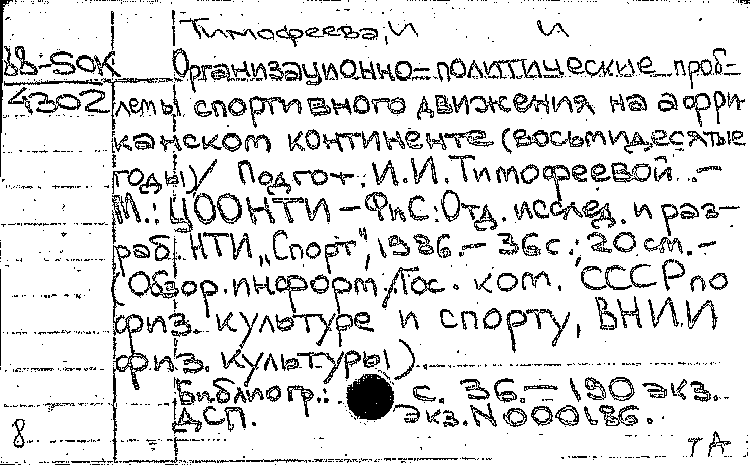 Тимофеева, И И
88-5ОК Организационно-политические проб-
4302 лемы спортивного движения на афри-
канском континенте (восьмидесятые
годы)/ Подгот. И.И.Тимофеевой. -
М.: ЦООНТИ - ФиС: Отд. исслед. и раз-
раб. НТИ „Спорт", 1986. - 36 с.; 20 см. -
(Обзор. информ./Гос. ком. СССР по
физ. культуре и спорту, ВНИИ
физ. культуры).
Библиогр.: с. 36. - 190 экз.
ДСП. Экз. N 000186.
8 ТА